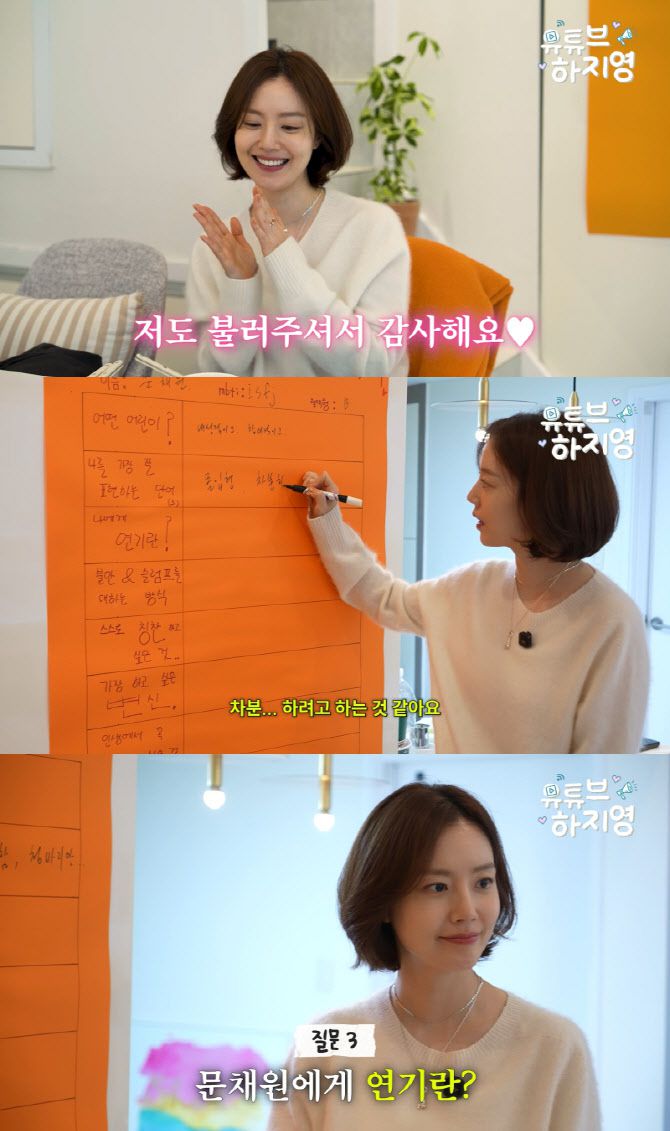 유튜브
하지영
저도 불러주셔서 감사해요♥
이름: 문채원
mbti: isfj
혈액형: B
어떤 어린이?
내성적이고
나를 가장 잘
표현하는 단어
(3)
몰입형, 차분한
유튜브
하지영
나에게
연기란?
불안 & 슬럼프를
대하는 방식
스스로 칭찬 하고
싶은 것..
가장 하고 싶은
변신.
인생에서 꼭
차분... 하려고 하는 것 같아요
유튜브
하지영
질문 3
문채원에게 연기란?